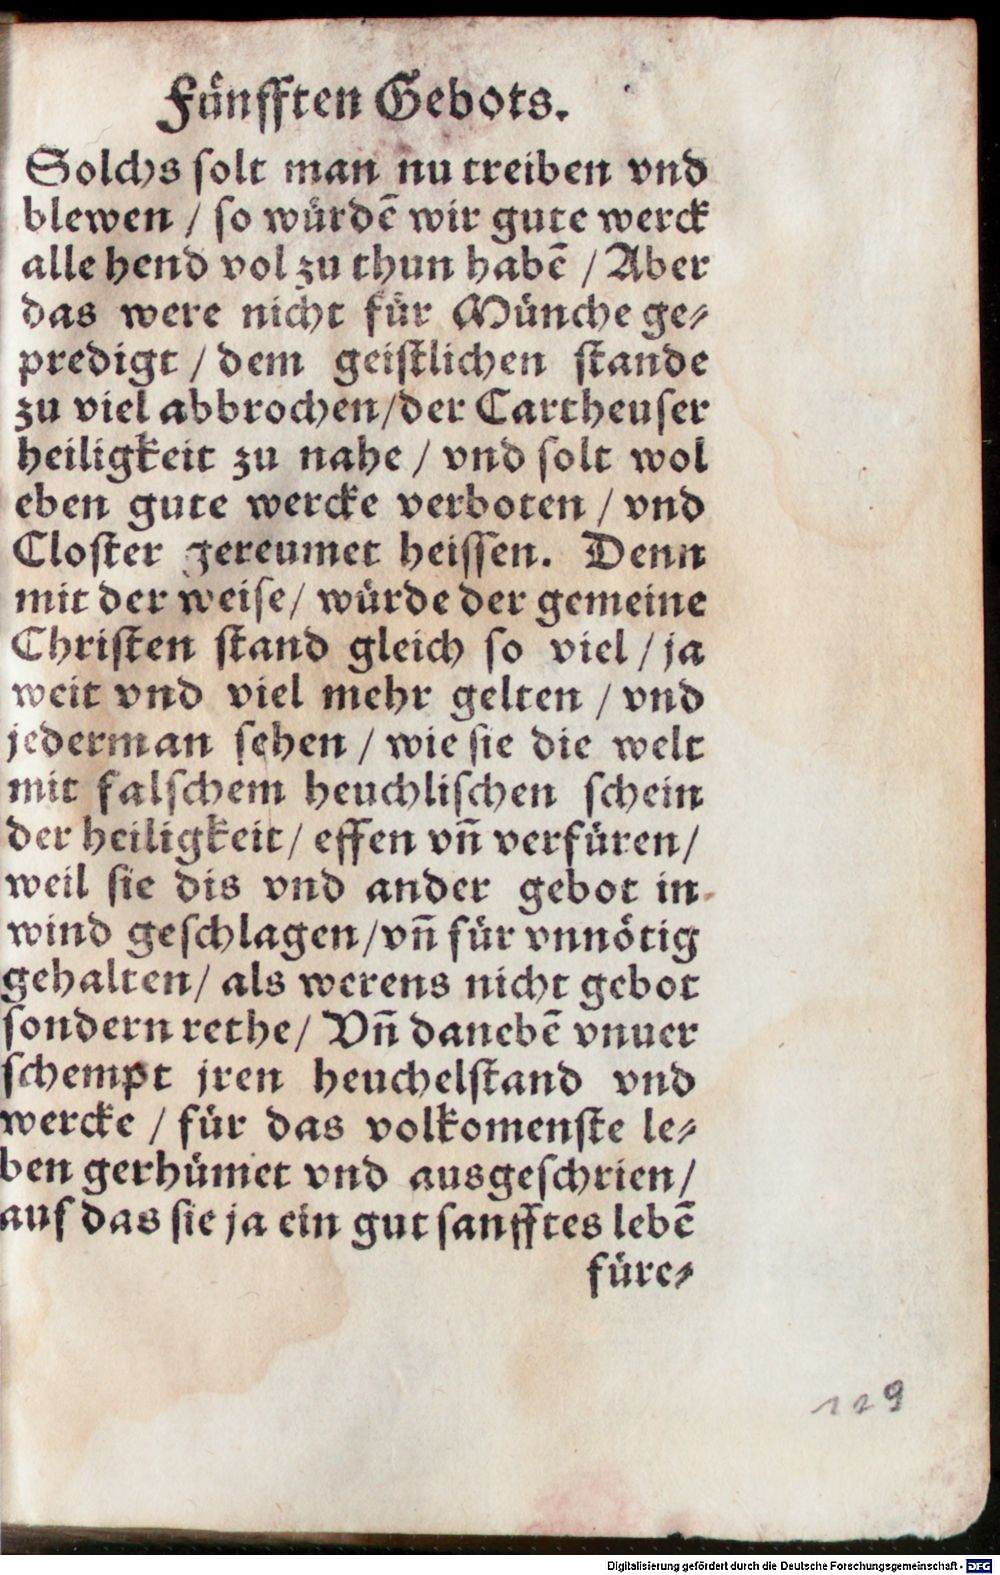 Fünfften Gebots.
Solchs solt man nu treiben vnd
blewen / so würdē wir gute werck
alle hend vol zu thun habē / Aber
das were nicht für Münche ge-
predigt / dem geistlichen stande
zu viel abbrochen/der Cartheuser
heiligkeit zu nahe / vnd solt wol
eben gute wercke verboten / vnd
Closter gereumet heissen. Denn
mit der weise/ würde der gemeine
Christen stand gleich so viel / ja
weit vnd viel mehr gelten / vnd
jederman sehen / wie sie die welt
mit falschem heuchlischen schein
der heiligkeit/ effen vn̄ verfüren/
weil sie dis vnd ander gebot in
wind geschlagen/vn̄ für vnnötig
gehalten/ als werens nicht gebot
sondern rethe/ Vn̄ danebē vnuer
schempt jren heuchelstand vnd
wercke / für das volkomenste le-
ben gerhümet vnd ausgeschrien/
auf das sie ja ein gut sanfftes lebē
füre-
129
Digitalisierung gefördert durch die Deutsche Forschungsgemeinschaft - DFG